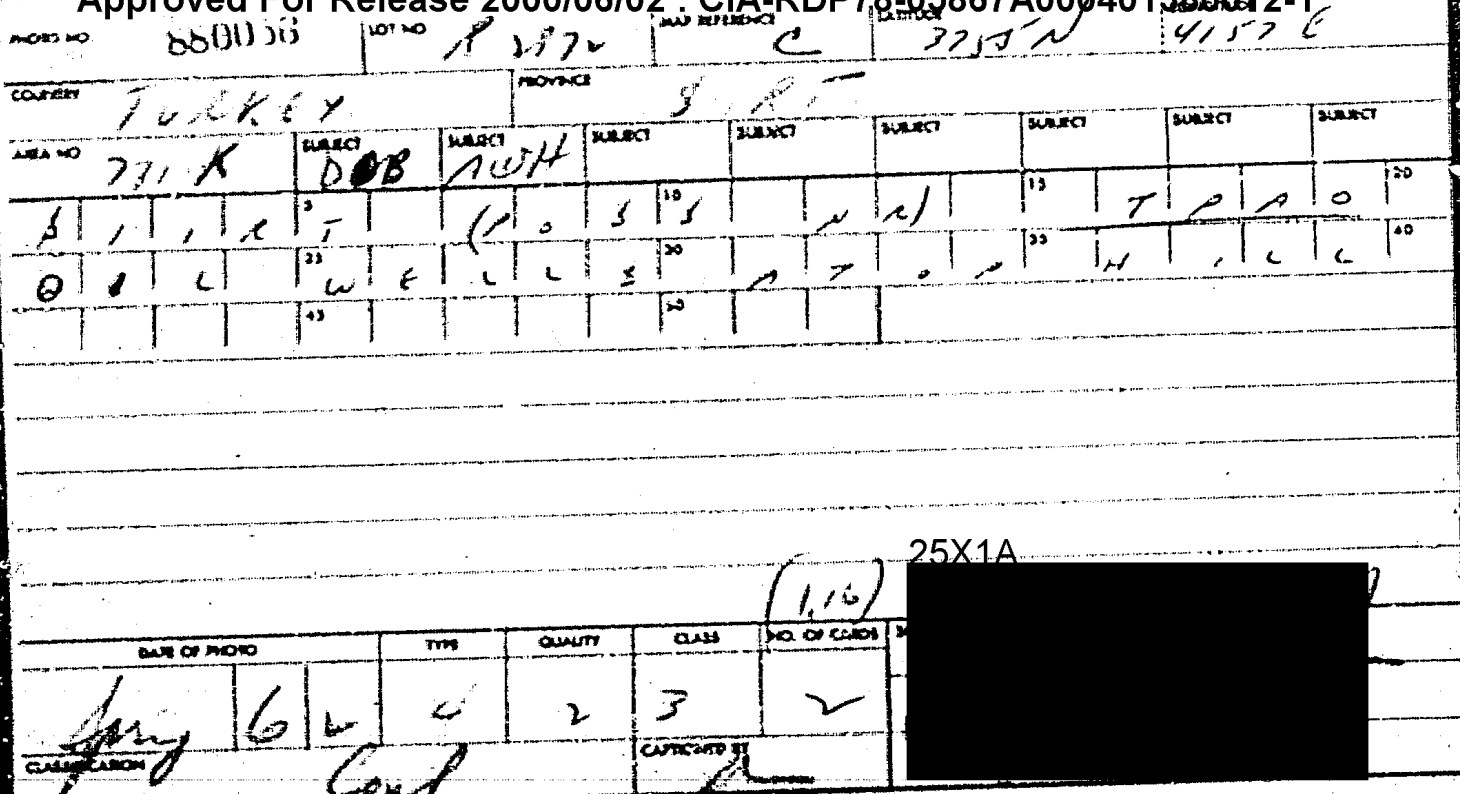 Approved For Release 2000/06/02 : CIA-RDP78-03867A0004013
PHOTO NO 880056 LOT NO R 2872 MAP REFERENCE C LATITUDE 3755 N LONGITUDE 4157 E
COUNTRY TURKEY PROVINCE SIIRT
AREA NO 771. K SUBJECT DOB SUBJECT AWH SUBJECT SUBJECT SUBJECT SUBJECT SUBJECT SUBJECT
SIIRT (POSS NR) TPAO
OIL WELLS ATOP HILL
25X1A
(1,16)
DATE OF PHOTO TYPE QUALITY CLASS NO. OF CARDS
Spring 62 4 2 3 2
CLASSIFICATION Conf CAPTIONED BY